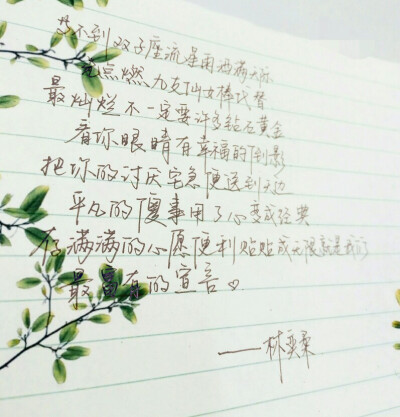 等不到双子座流星雨洒满天际
先点燃九支仙女棒代替
最灿烂不一定要许多钻石黄金
看你眼睛有幸福的倒影
把你的讨厌宅急便送到天边
平凡的傻事用了心变成经典
存满满的心愿便利贴贴成无限就是我们
最富有的宣言
——林奕